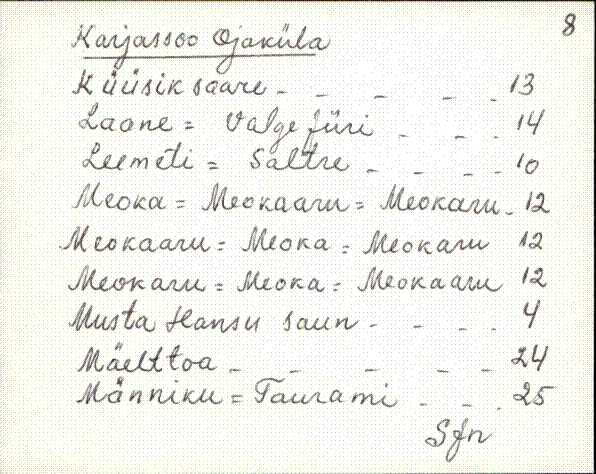 8
Karjassoo Ojaküla
Küüsiksaare - - - - - 13
Laane = Valge Jüri - - - 14
Leemeti = Saltre - - - - 10
Meoka = Meokaaru = Meokaru - 12
Meokaaru = Meoka = Meokaru 12
Meokaru = Meoka = Meokaaru 12
Musta Hansu saun - - - - 4
Mäelttoa - - - - - 24
Männiku = Taurami - - - 25